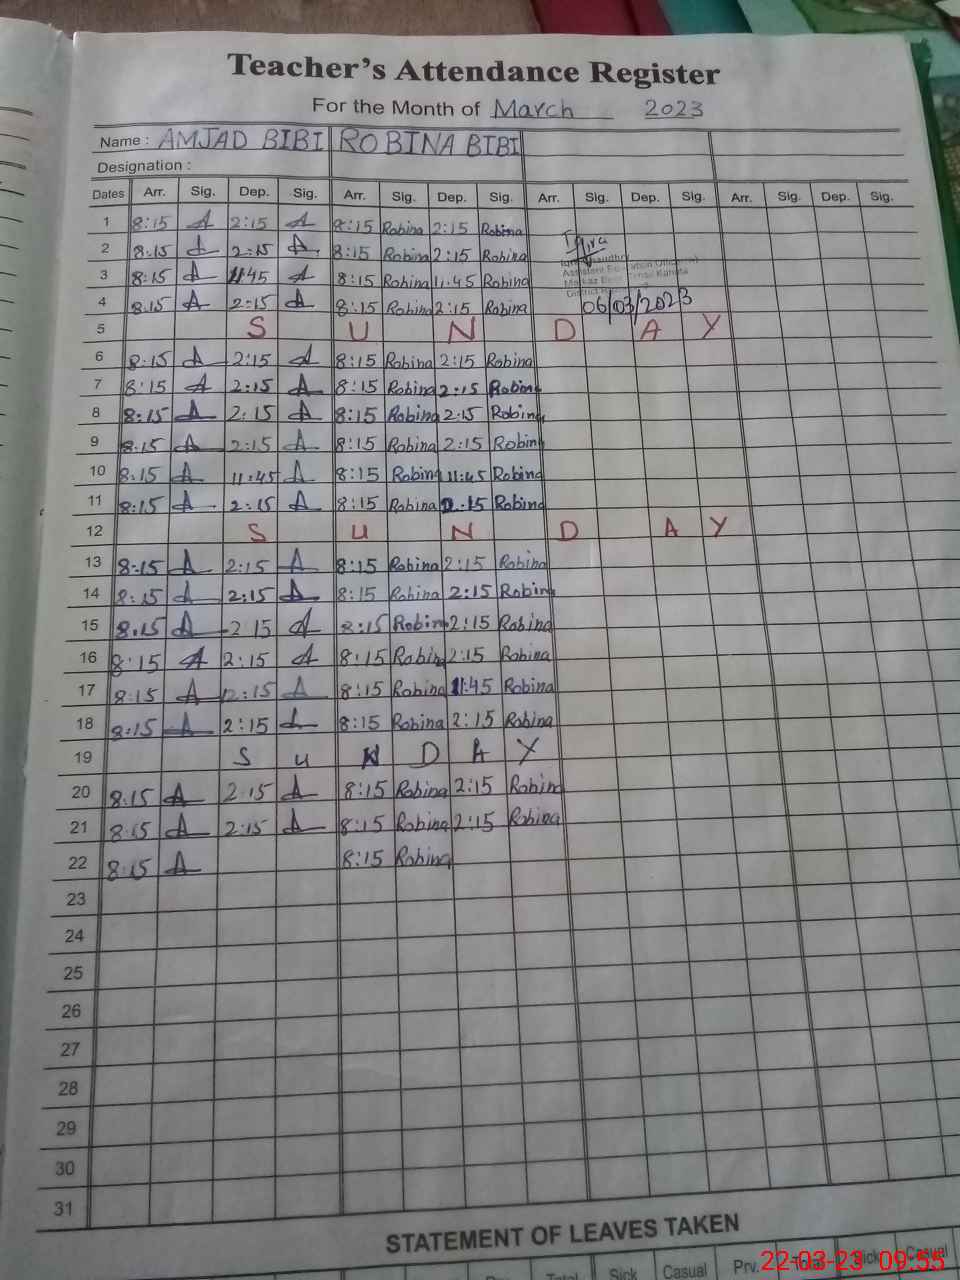 Teacher's Attendance Register
For the Month of March 2023
Name : AMJAD BIBI ROBINA BIBI
Designation :
Dates Arr. Sig. Dep. Sig. Arr. Sig. Dep. Sig. Arr. Sig. Dep. Sig. Arr. Sig. Dep. Sig.
1 8:15 A 2:15 A 8:15 Robina 2:15 Robina
2 8:15 A 2:15 A 8:15 Robina 2:15 Robina
3 8:15 A 11:45 A 8:15 Robina 11:45 Robina
4 8:15 A 2:15 A 8:15 Robina 2:15 Robina
06/03/2023
5 S U N D A Y
6 8:15 A 2:15 A 8:15 Robina 2:15 Robina
7 8:15 A 2:15 A 8:15 Robina 2:15 Robina
8 8:15 A 2:15 A 8:15 Robina 2:15 Robina
9 8:15 A 2:15 A 8:15 Robina 2:15 Robin
10 8:15 A 11:45 A 8:15 Robina 11:45 Robina
11 8:15 A 2:15 A 8:15 Robina 2:15 Robina
12 S U N D A Y
13 8:15 A 2:15 A 8:15 Robina 2:15 Robina
14 8:15 A 2:15 A 8:15 Robina 2:15 Robina
15 8:15 A 2 15 A 8:15 Robina 2:15 Robina
16 8:15 A 2:15 A 8:15 Robina 2:15 Robina
17 8:15 A 12:15 A 8:15 Robina 11:45 Robina
18 8:15 A 2:15 A 8:15 Robina 2:15 Robina
19 S U N D A Y
20 8:15 A 2:15 A 8:15 Robina 2:15 Robin
21 8:15 A 2:15 A 8:15 Robina 2:15 Robina
22 8:15 A 8:15 Robina
23
24
25
26
27
28
29
30
31
STATEMENT OF LEAVES TAKEN
Total Sick Casual Prv. Total Sick Casual
22-03-23 09:55